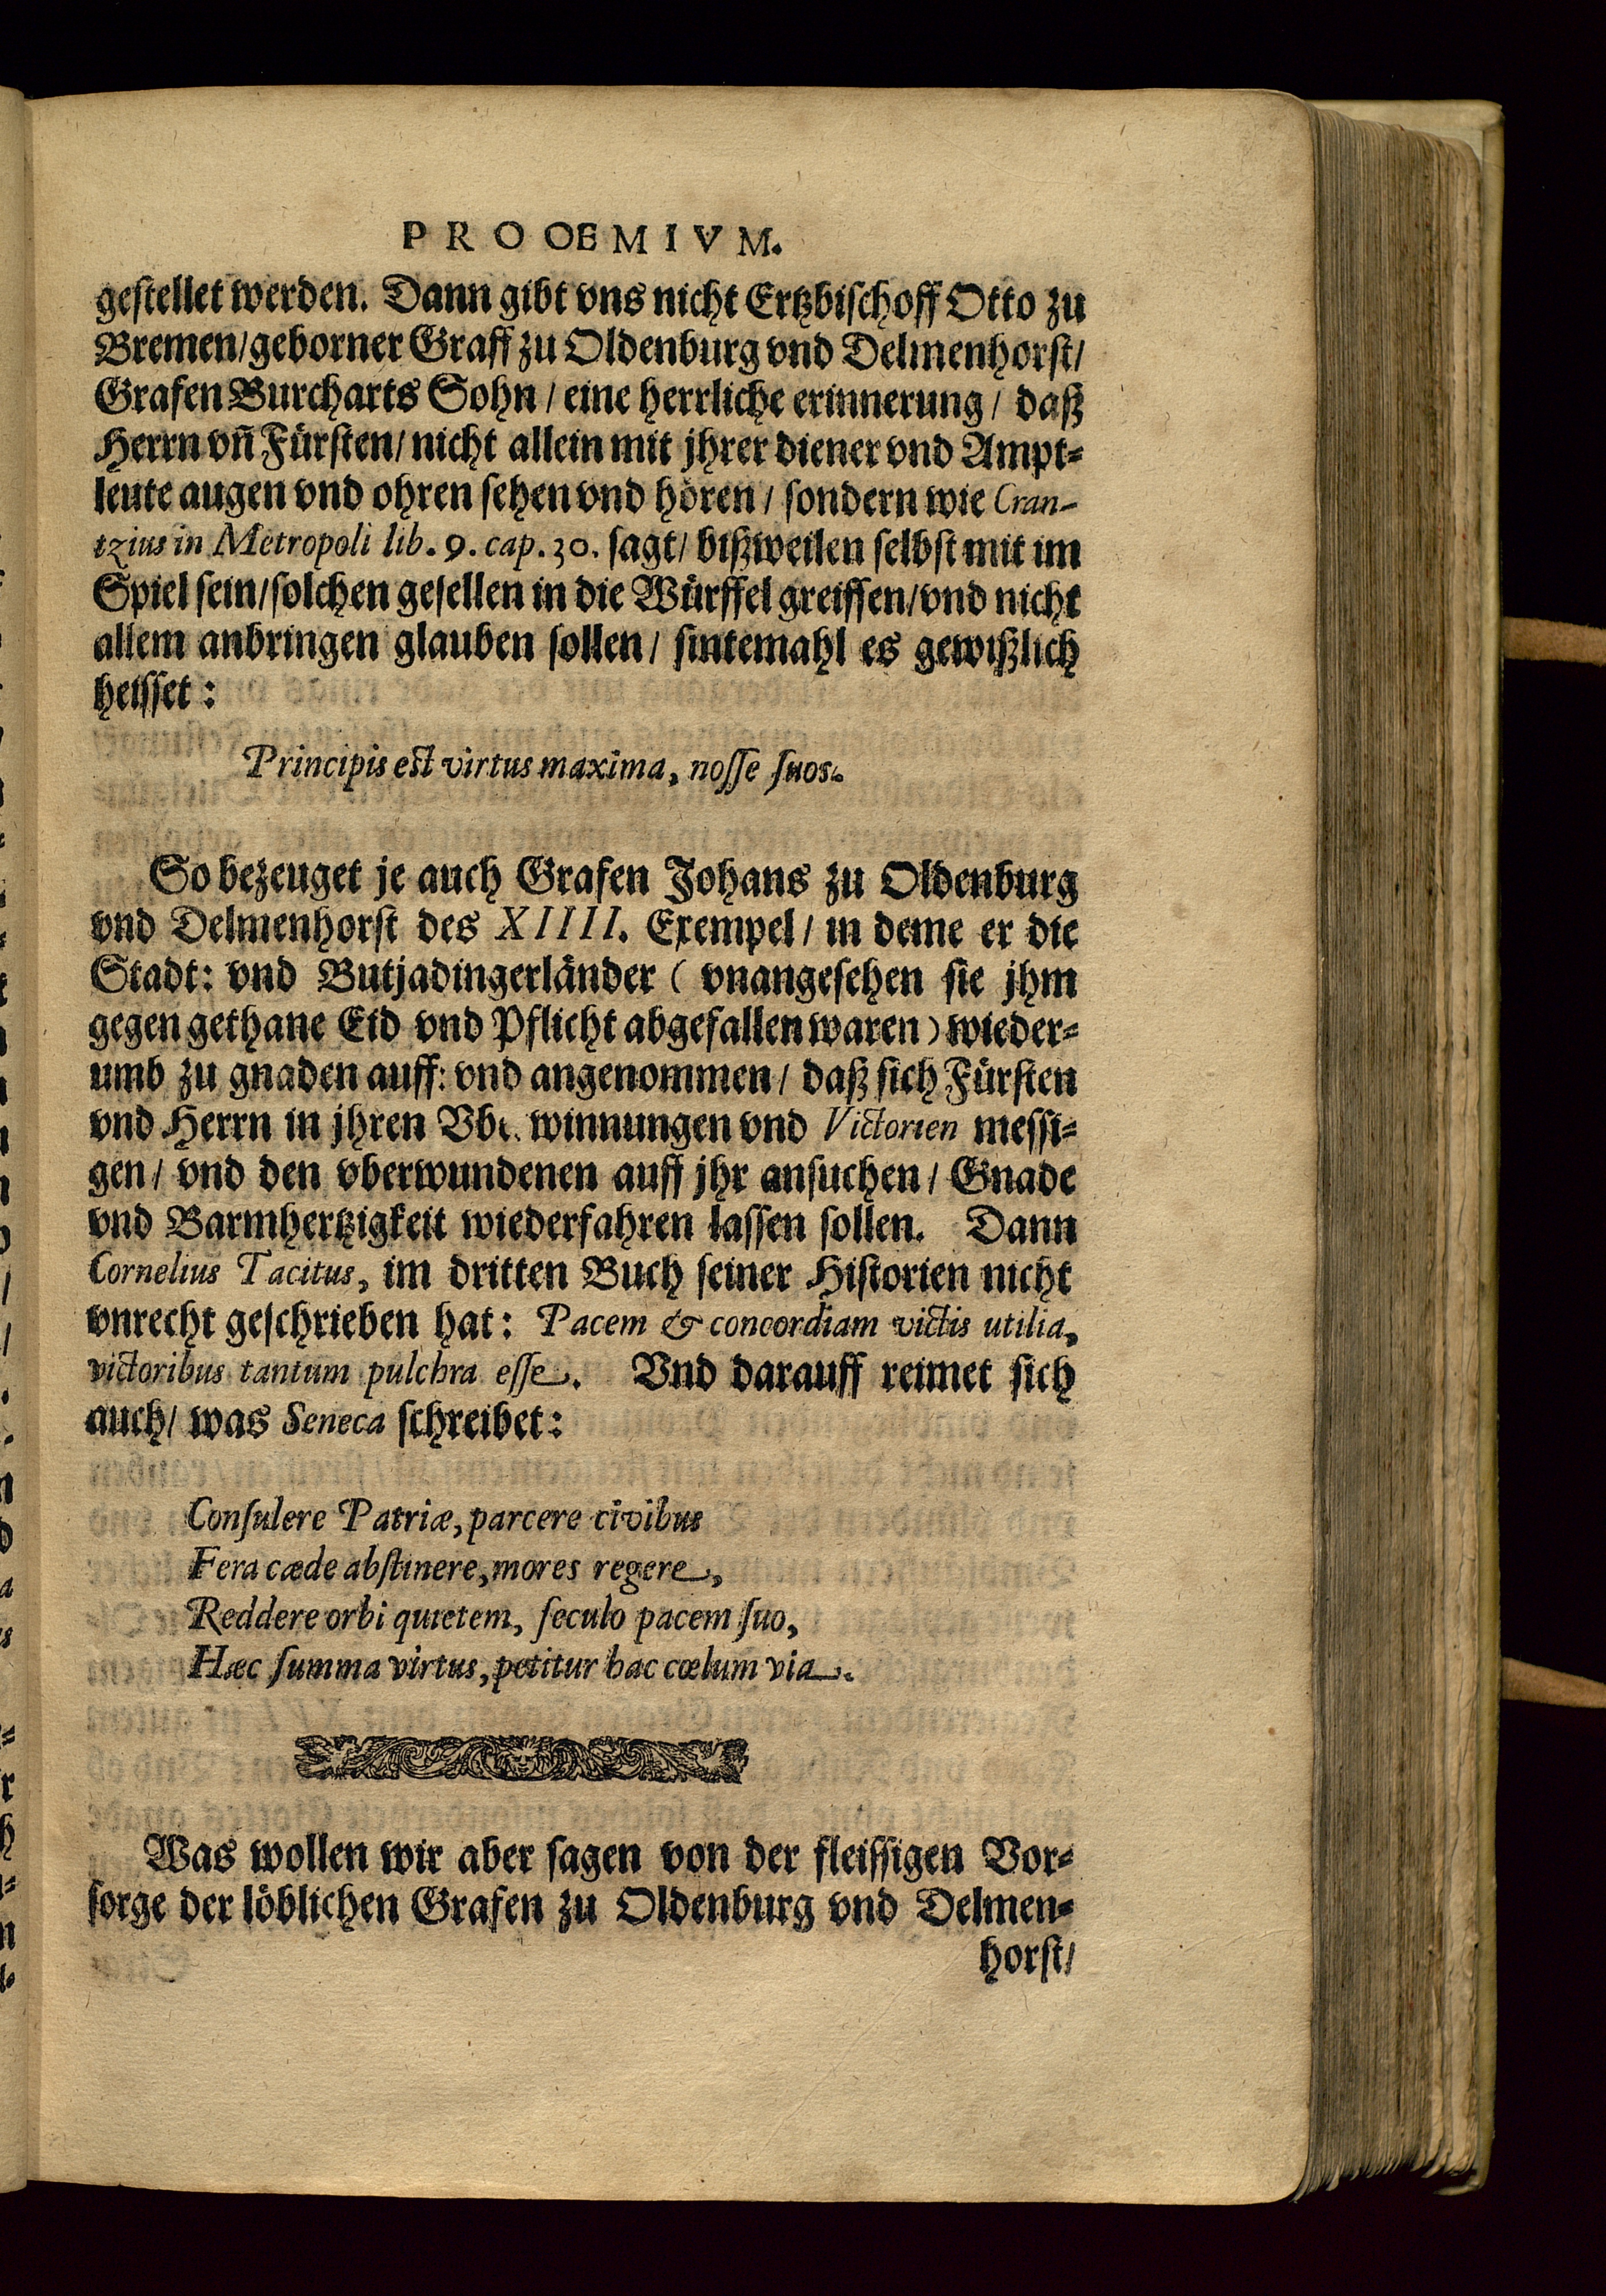 PROOEMIVM.
gestellet werden. Dann gibt vns nicht Ertzbischoff Otto zu
Bremen/geborner Graff zu Oldenburg vnd Delmenhorst/
Grafen Burcharts Sohn / eine herrliche erinnerung / daß
Herrn vñ Fürsten/ nicht allein mit jhrer diener vnd Ampt-
leute augen vnd ohren sehen vnd hören / sondern wie Cran-
tzius in Metropoli lib. 9. cap. 30. sagt/ bißweilen selbst mit im
Spiel sein/solchen gesellen in die Würffel greiffen/vnd nicht
allem anbringen glauben sollen / sintemahl es gewißlich
heisset:
Principis est virtus maxima, nosse suos.
So bezeuget je auch Grafen Johans zu Oldenburg
vnd Delmenhorst des XIIII. Exempel / in deme er die
Stadt: vnd Butjadingerländer ( vnangesehen sie jhm
gegen gethane Eid vnd Pflicht abgefallen waren) wieder-
umb zu gnaden auff: vnd angenommen / daß sich Fürsten
vnd Herrn in jhren winnungen vnd Victorien messi-
gen / vnd den vberwundenen auff jhr ansuchen / Gnade
vnd Barmhertzigkeit wiederfahren lassen sollen. Dann
Cornelius Tacitus, im dritten Buch seiner Historien nicht
vnrecht geschrieben hat: Pacem & concordiam victis utilia,
victoribus tantum pulchra esse. Vnd darauff reimet sich
auch/ was Seneca schreibet:
Consulere Patriæ, parcere civibus
Fera cæde abstinere, mores regere,
Reddere orbi quietem, seculo pacem suo,
Hæc summa virtus, petitur hac cœlum via.
Was wollen wir aber sagen von der fleissigen Vor-
sorge der löblichen Grafen zu Oldenburg vnd Delmen-
horst/